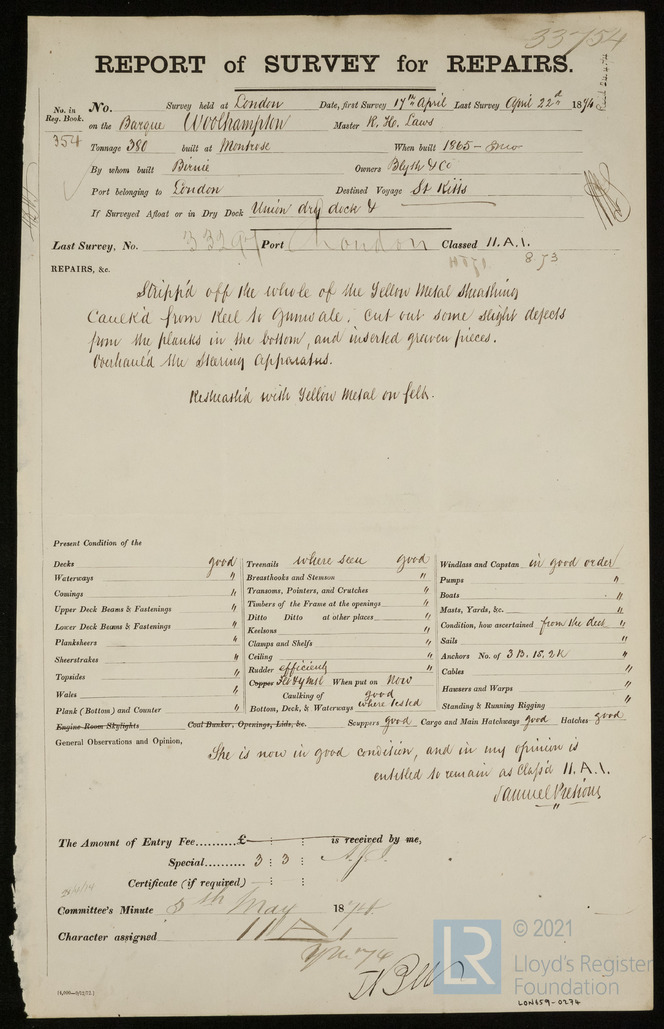 33754
REPORT of SURVEY for REPAIRS.
No. in Reg. Book. No. Survey held at London Date, first Survey 17th April Last Survey April 22nd 1874
354 on the Barque Woolhampton Master R. H. Laws
Tonnage 380 built at Montrose When built 1865
By whom built Birnie Owners Blyth & Co
Port belonging to London Destined Voyage St Kitts
If Surveyed Afloat or in Dry Dock Union dry dock &
Last Survey, No. 33297 Port London Classed 11.A.1.
8.73
REPAIRS, &c.
Stripp'd off the whole of the Yellow Metal Sheathing
Caulk'd from Keel to Gunwale. Cut out some slight defects
from the planks in the bottom, and inserted graven pieces.
Overhaul'd the Steering Apparatus.
Resheath'd with Yellow Metal on felt.
Present Condition of the
Decks good
Waterways "
Comings "
Upper Deck Beams & Fastenings "
Lower Deck Beams & Fastenings "
Planksheers "
Sheerstrakes "
Topsides "
Wales "
Plank (Bottom) and Counter "
Treenails where seen good
Breasthooks and Stemson "
Transoms, Pointers, and Crutches "
Timbers of the Frame at the openings "
Ditto Ditto at other places "
Keelsons "
Clamps and Shelfs "
Ceiling "
Rudder efficient "
Copper When put on Now
Caulking of good
Bottom, Deck, & Waterways where tested
Windlass and Capstan in good order
Pumps "
Boats "
Masts, Yards, &c. "
Condition, how ascertained from the deck "
Sails "
Anchors No. of 3 B. 1S. 2K "
Cables "
Hawsers and Warps "
Standing & Running Rigging "
Engine Room Skylights Coal Bunker, Openings, Lids, &c. Scuppers good Cargo and Main Hatchways good Hatches good
General Observations and Opinion,
She is now in good condition, and in my opinion is
entitled to remain as Class'd 11.A.1.
Samuel Pretious
The Amount of Entry Fee..........£ : : is received by me,
Special.......... 3 : 3 :
Certificate (if required) : :
Committee's Minute 5th May 1874
Character assigned 11 A 1
© 2021
LR Lloyd's Register
Foundation
LON659-0274